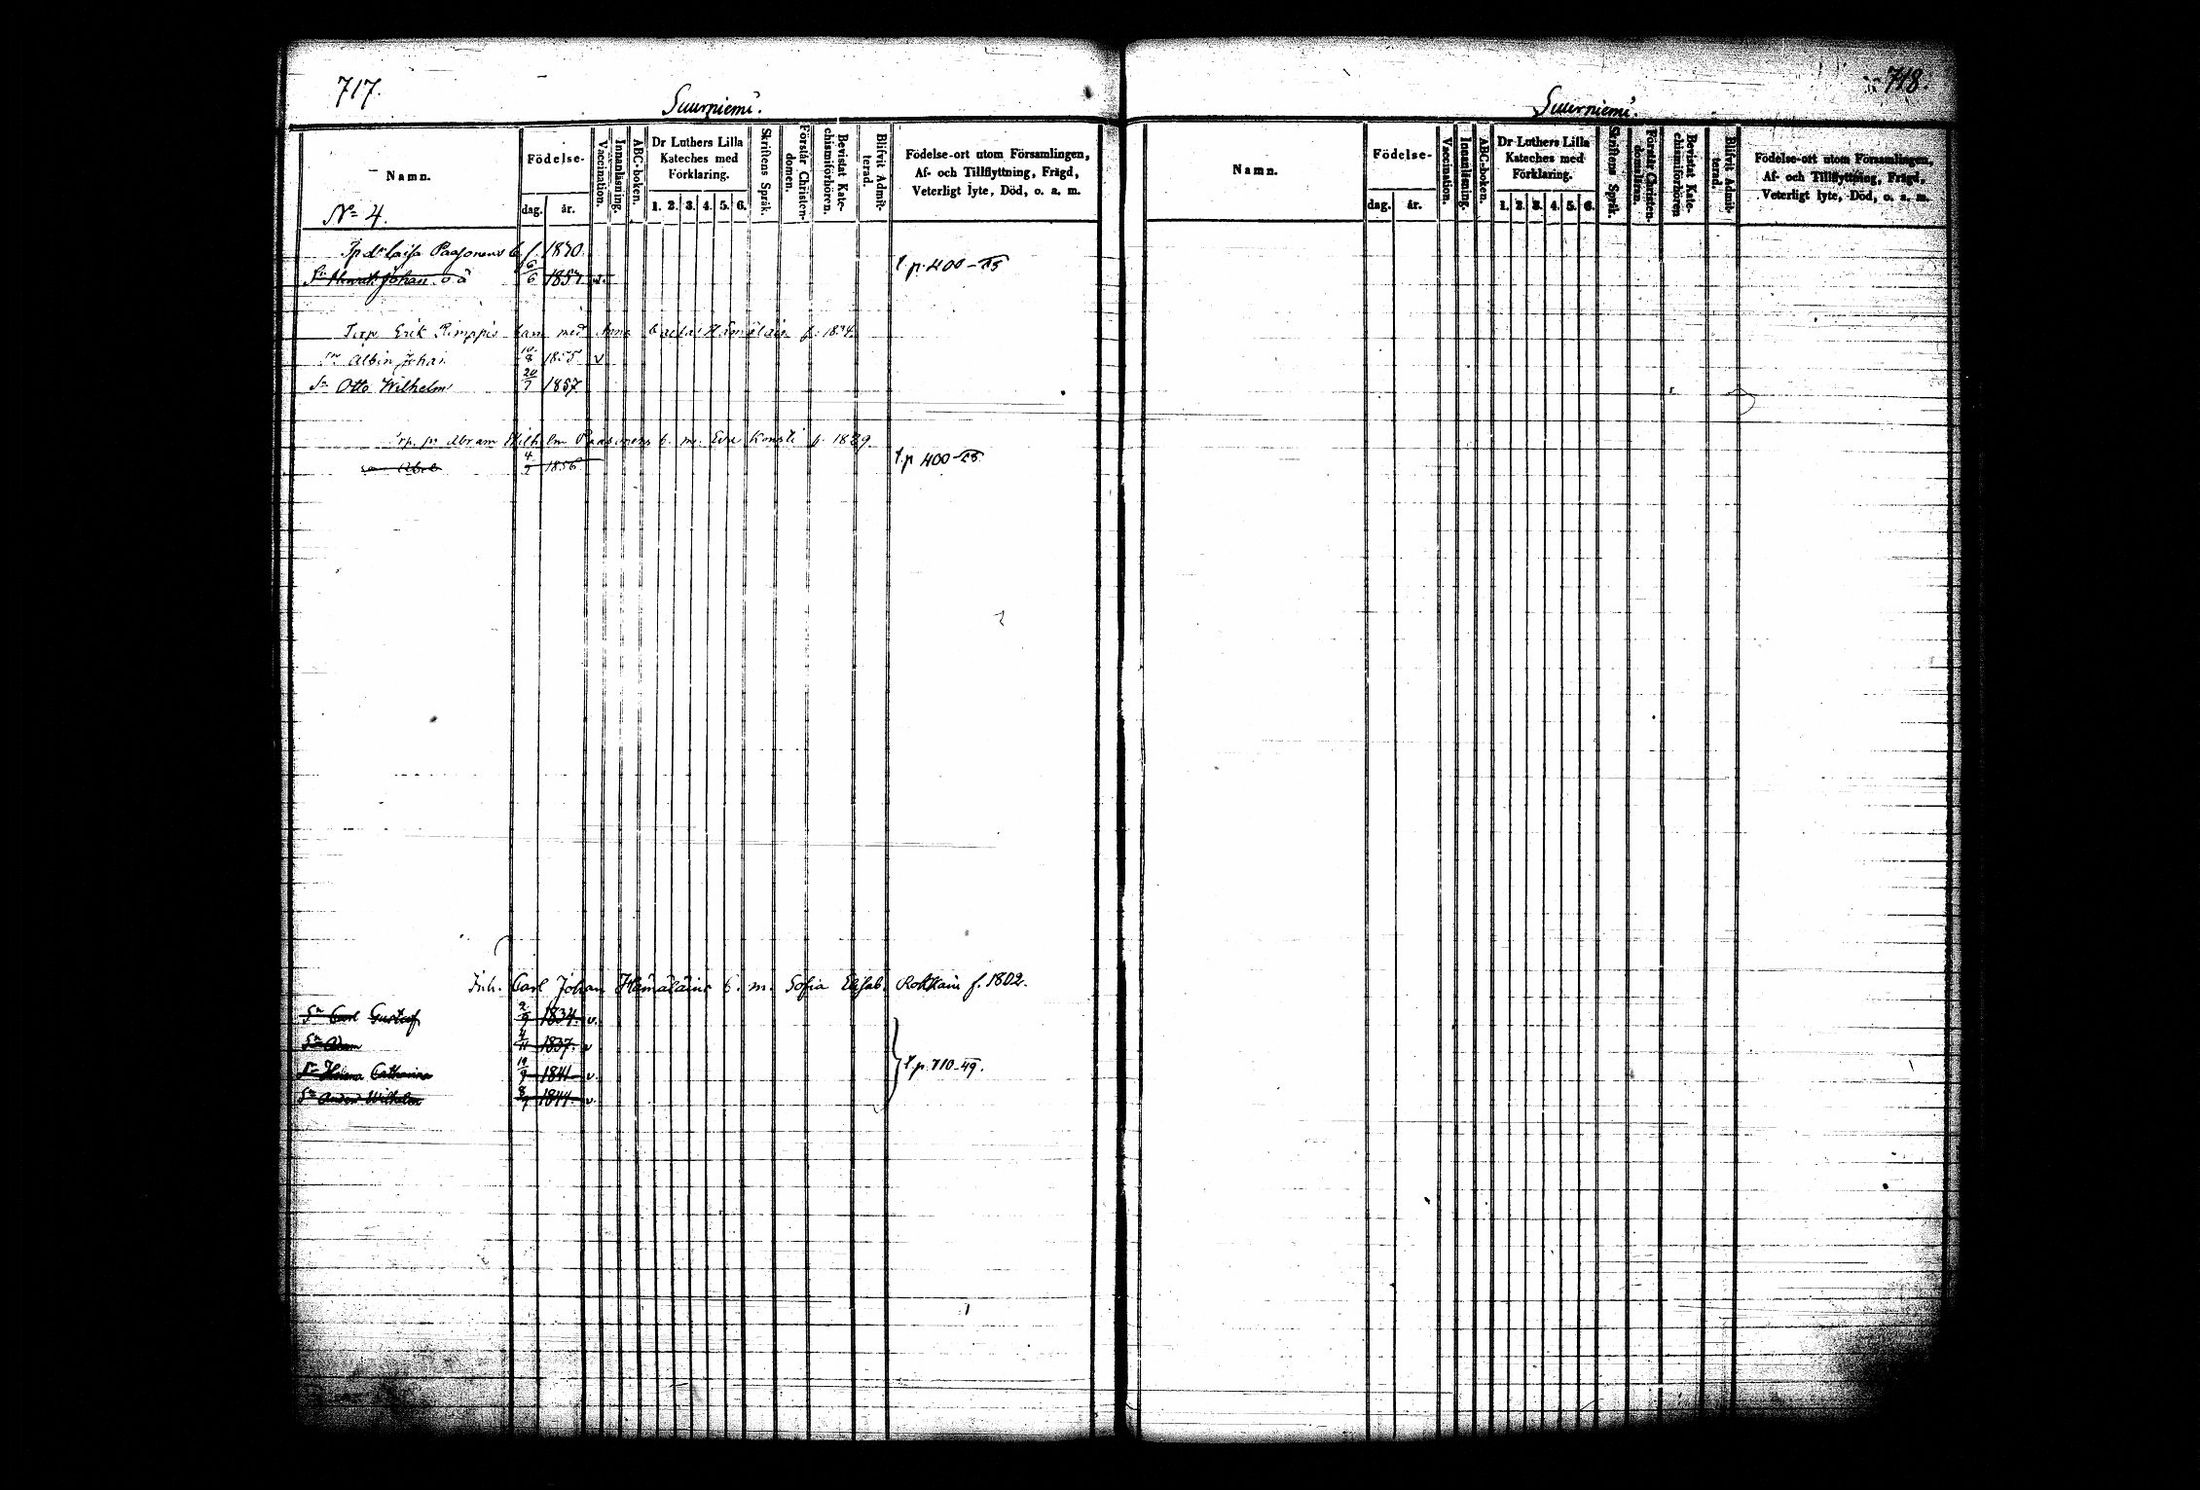 717.
Suurniemi.
Namn.
Födelse-
dag.
år.
Vaccination.
Innanläsning.
ABC-boken.
Dr Luthers Lilla
Kateches med
Förklaring.
1. 2. 3. 4. 5. 6.
Skriftens Språk.
Förstår Christen-
domen.
Bevistat Kate-
chismiförhören.
Blifvit Admit-
terad.
Födelse-ort utom Församlingen,
Af- och Tillflyttning, Frägd,
Veterligt lyte, Död, o. a. m.
No 4.
Caisa Paasonens b. f. 1830.
Sn Johan o ä 6/6 1857. v. t. p. 400-
Erik Rimppis barn med Anna Hämäläin f. 1834.
Sn Albin Johan 1855 v
Sn Otto Wilhelm 20/7 1857
Abram Wilhelm Paasonens b. m. Eva f. 1829.
1856 t. p 400-
Inh. Carl Johan Hämäläins b. m. Sofia Elisab. Rokkain f. 1802.
Sn Carl Gustaf 2/9 1834. v.
Sn 4/11 1837. v
Helena Catharina 19/9 1841 v. t. p. 710-49.
Sn Wilhelm 1844 v
718.
Suurniemi.
Namn.
Födelse-
dag.
år.
Vaccination.
Innanläsning.
ABC-boken.
Dr Luthers Lilla
Kateches med
Förklaring.
1. 2. 3. 4. 5. 6.
Skriftens Språk.
Förstår Christen-
domsläran.
Bevistat Kate-
chismiförhören
Blifvit Admit-
terad.
Födelse-ort utom Församlingen,
Af- och Tillflyttning, Frägd,
Veterligt lyte, Död, o. a. m.